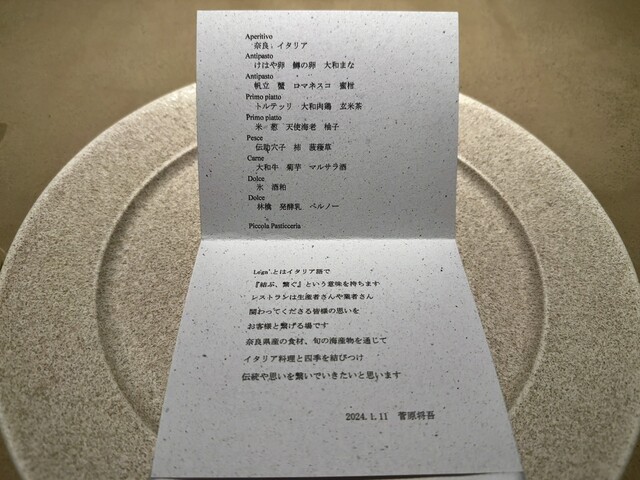 Aperitivo
奈良、イタリア
Antipasto
けはや卵 鱒の卵 大和まな
Antipasto
帆立 蟹 ロマネスコ 蜜柑
Primo piatto
トルテッリ 大和肉鶏 玄米茶
Primo piatto
米 葱 天使海老 柚子
Pesce
伝助穴子 柿 菠薐草
Carne
大和牛 菊芋 マルサラ酒
Dolce
氷 酒粕
Dolce
林檎 発酵乳 ペルノー
Piccola Pasticceria
とはイタリア語で
『結ぶ、繋ぐ』という意味を持ちます
レストランは生産者さんや業者さん
関わってくださる皆様の思いを
お客様と繋げる場です
奈良県産の食材、旬の海産物を通じて
イタリア料理と四季を結びつけ
伝統や思いを繋いでいきたいと思います
2024.1.11 菅原将吾